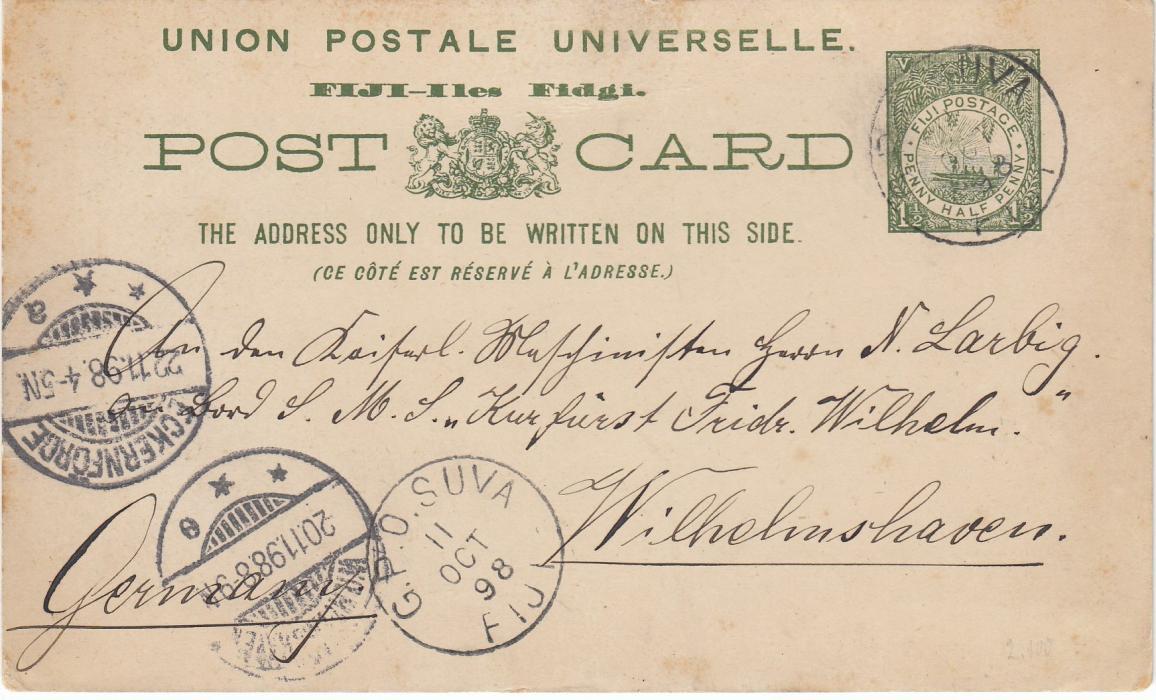 UNION POSTALE UNIVERSELLE.
FIJI–Iles Fidgi.
POST CARD
FIJI POSTAGE
PENNY HALF PENNY
1½ 1½
THE ADDRESS ONLY TO BE WRITTEN ON THIS SIDE.
(CE CÔTÉ EST RÉSERVÉ À L'ADRESSE.)
An den Kaiserl. Maschinisten Herrn N. Larbig.
An Bord S. M. S. „Kurfürst Fridr. Wilhelm."
Wilhelmshaven.
Germany
a
22.11.98. 4-5N.
ECKERNFÖRDE
e
20.11.98.8-9
G.P.O. SUVA
11
OCT
98
FIJI